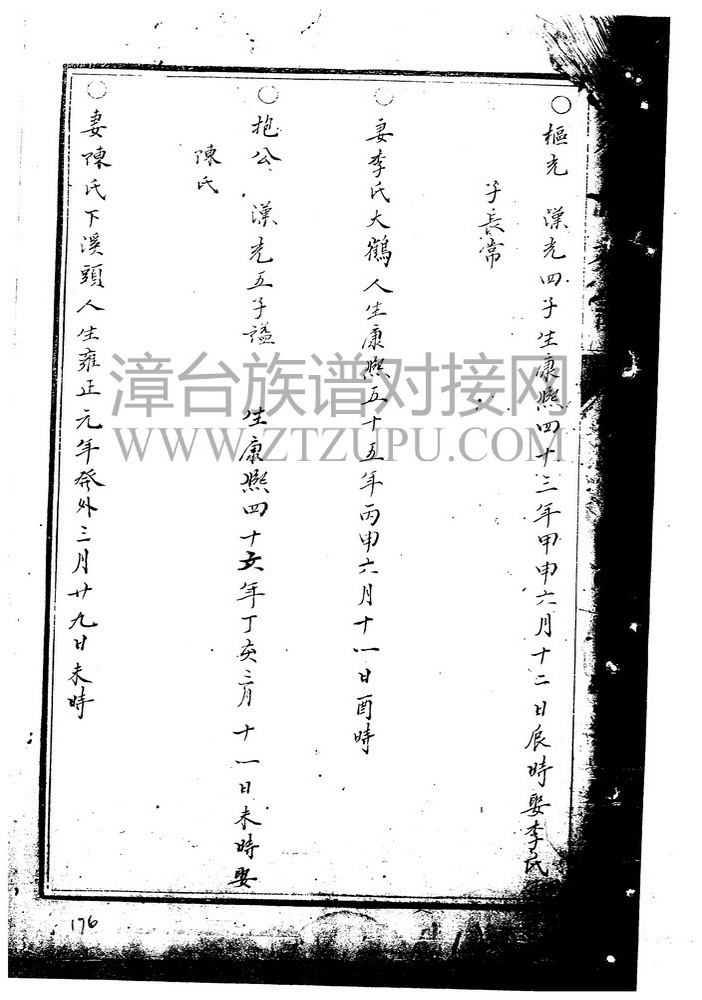 ○樞光 漢光四子生康熙四十三年甲申六月十二日辰時娶李氏
子長常
○妻李氏大鶴人生康熙五十五年丙申六月十一日酉時
○抱公 漢光五子謚 生康熙四十六年丁亥三月十一日未時娶
陳氏
○妻陳氏下溪頭人生雍正元年癸外三月廿九日未時
漳台族谱对接网
WWW.ZTZUPU.COM
176